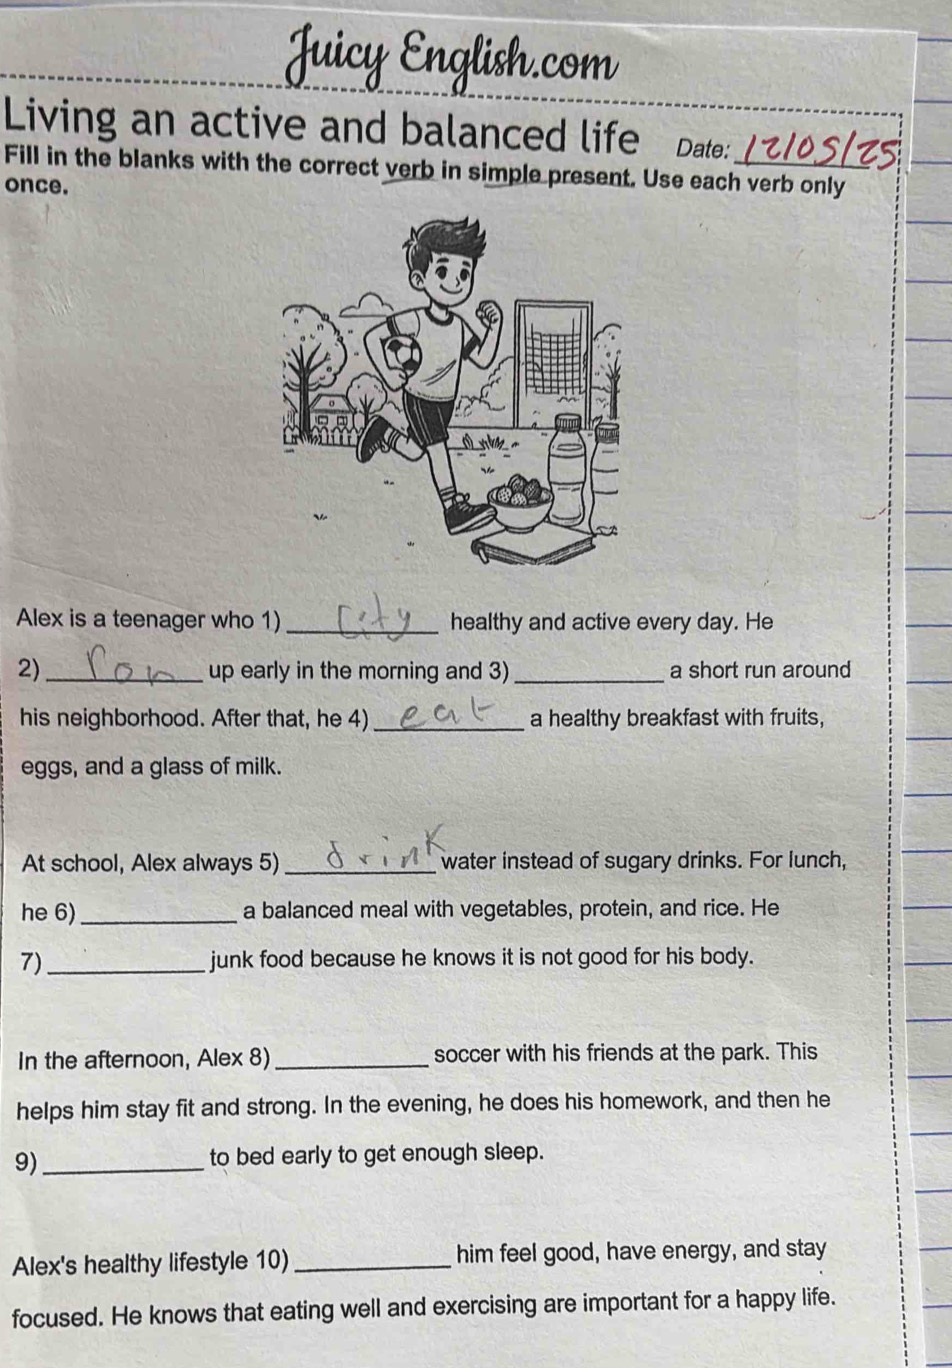 Juicy English.com
Living an active and balanced life Date: 12/05/25
Fill in the blanks with the correct verb in simple present. Use each verb only
once.
Alex is a teenager who 1) City healthy and active every day. He
2) ron up early in the morning and 3)____________ a short run around
his neighborhood. After that, he 4) eat a healthy breakfast with fruits,
eggs, and a glass of milk.
At school, Alex always 5) drink water instead of sugary drinks. For lunch,
he 6)____________ a balanced meal with vegetables, protein, and rice. He
7)____________ junk food because he knows it is not good for his body.
In the afternoon, Alex 8)____________ soccer with his friends at the park. This
helps him stay fit and strong. In the evening, he does his homework, and then he
9)____________ to bed early to get enough sleep.
Alex's healthy lifestyle 10)____________ him feel good, have energy, and stay
focused. He knows that eating well and exercising are important for a happy life.